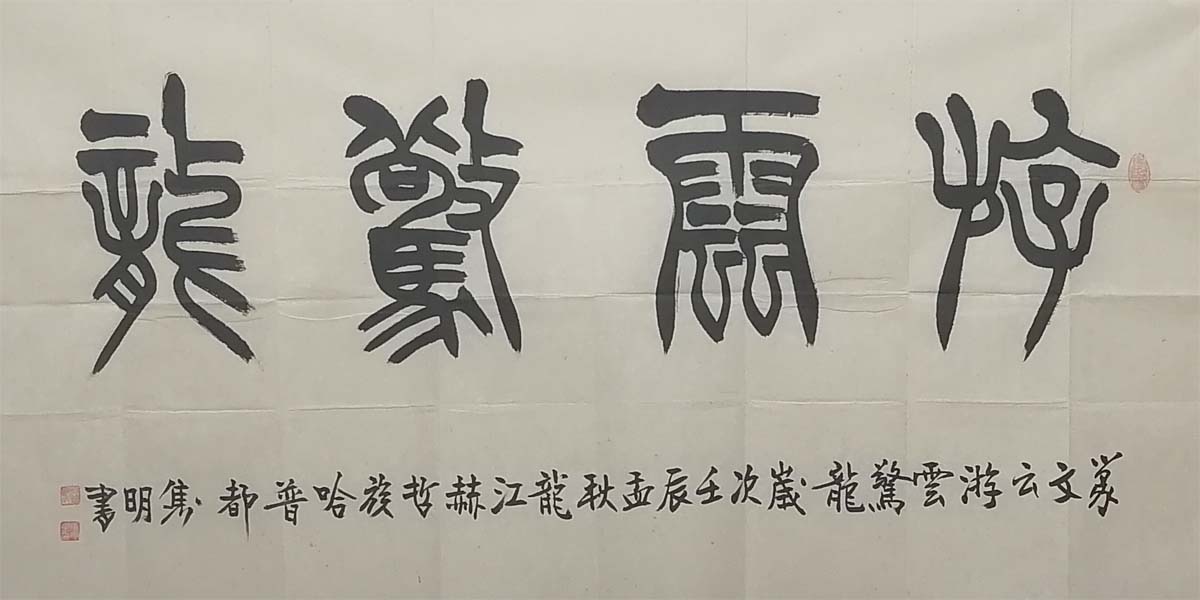 游雲驚龍
篆文云游雲驚龍歲次壬辰孟秋龍江赫哲族哈普都隽明書